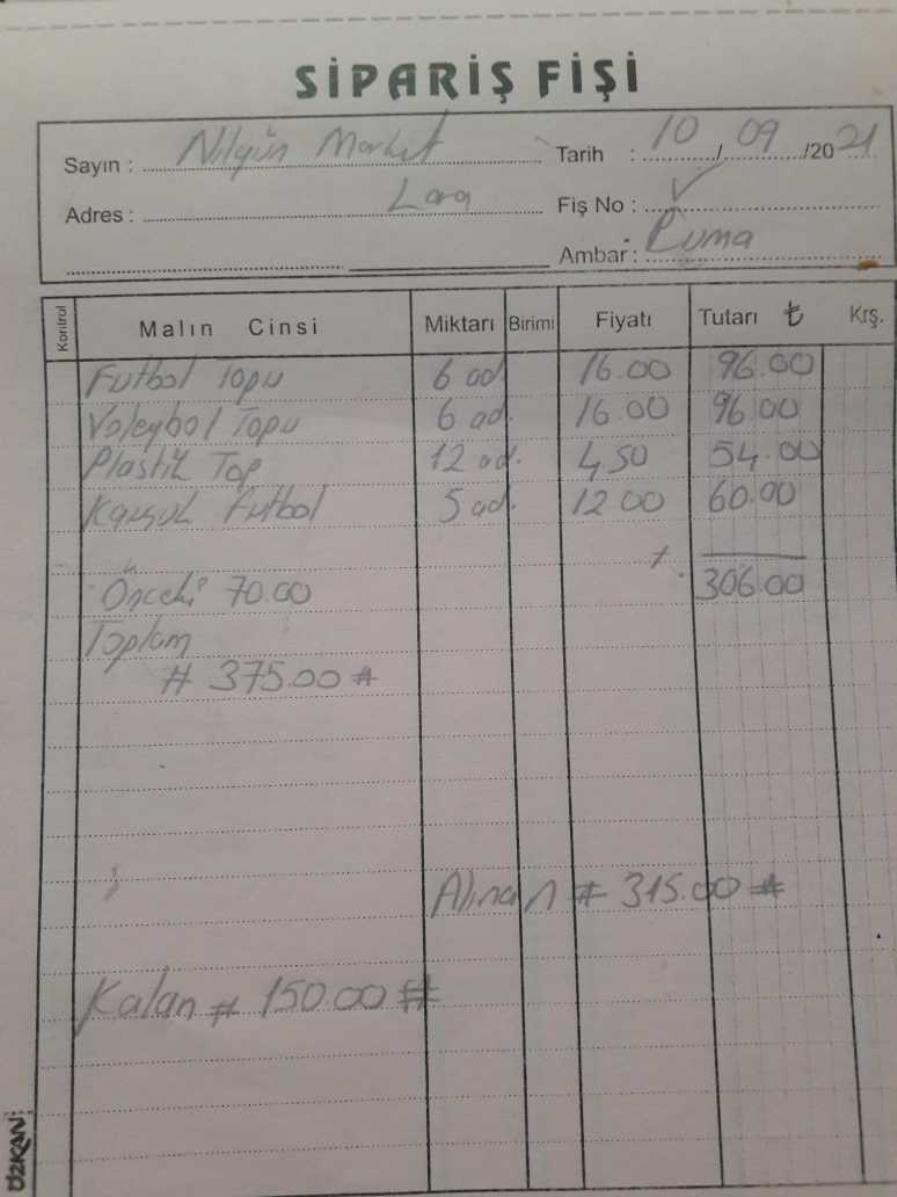 SİPARİŞ FİŞİ
Sayın : Nilgün Market
Tarih : 10 / 09 /2021
Adres : Lara
Fiş No :
Ambar :
Kontrol Malın Cinsi Miktarı Birimi Fiyatı Tutarı ₺ Krş.
Futbol Topu 6 ad. 16.00 96.00
Voleybol Topu 6 ad. 16.00 96.00
Plastik Top 12 ad. 4,50 54.00
Futbol 5 ad. 12 00 60.00
306.00
Önceki 70.00
Toplam
# 375.00 #
Alınan # 315.00 #
Kalan # 150.00 #
ÖZKAN